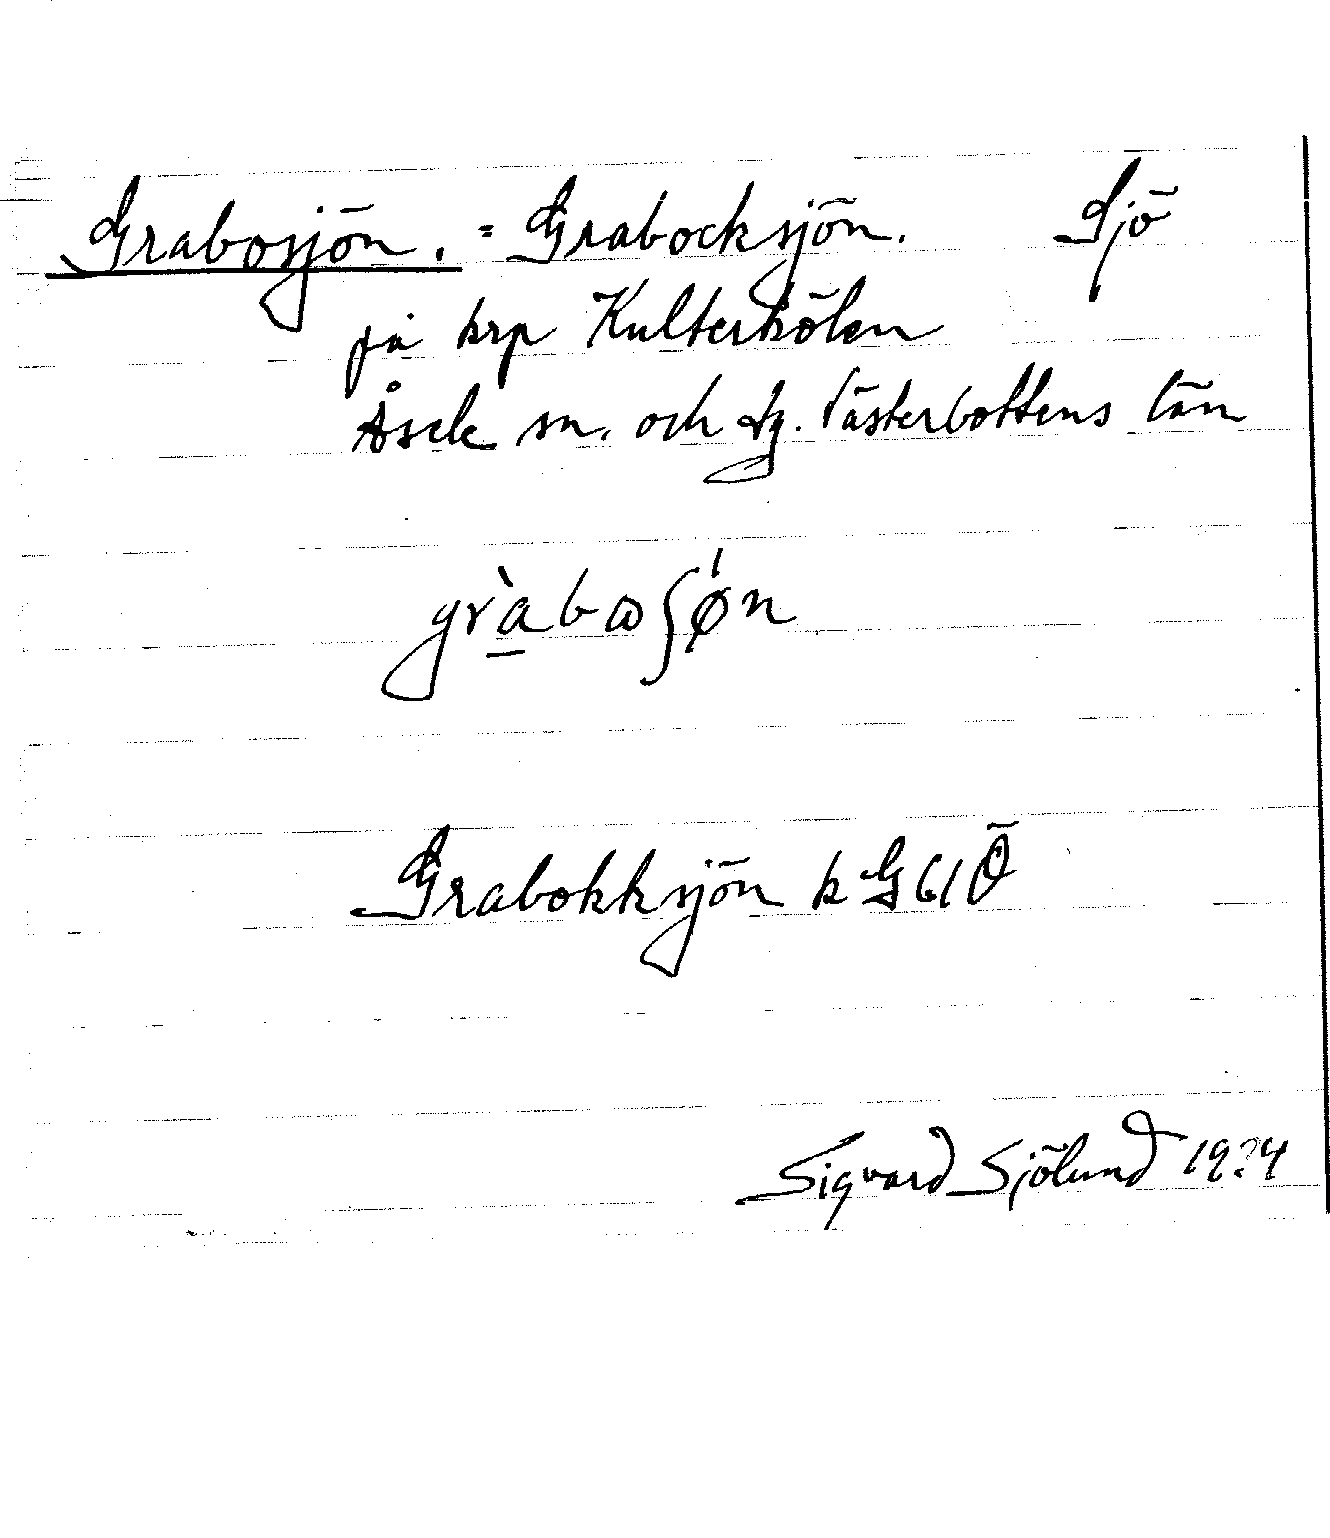 Grabosjön. = Grabocksjön. Sjö
på krp Kulterkölen
Åsele sn. och tg. Västerbottens län
gràbѡʃǿn
Grabokksjön k G 61 Ö
Sigvard Sjölund 19?4